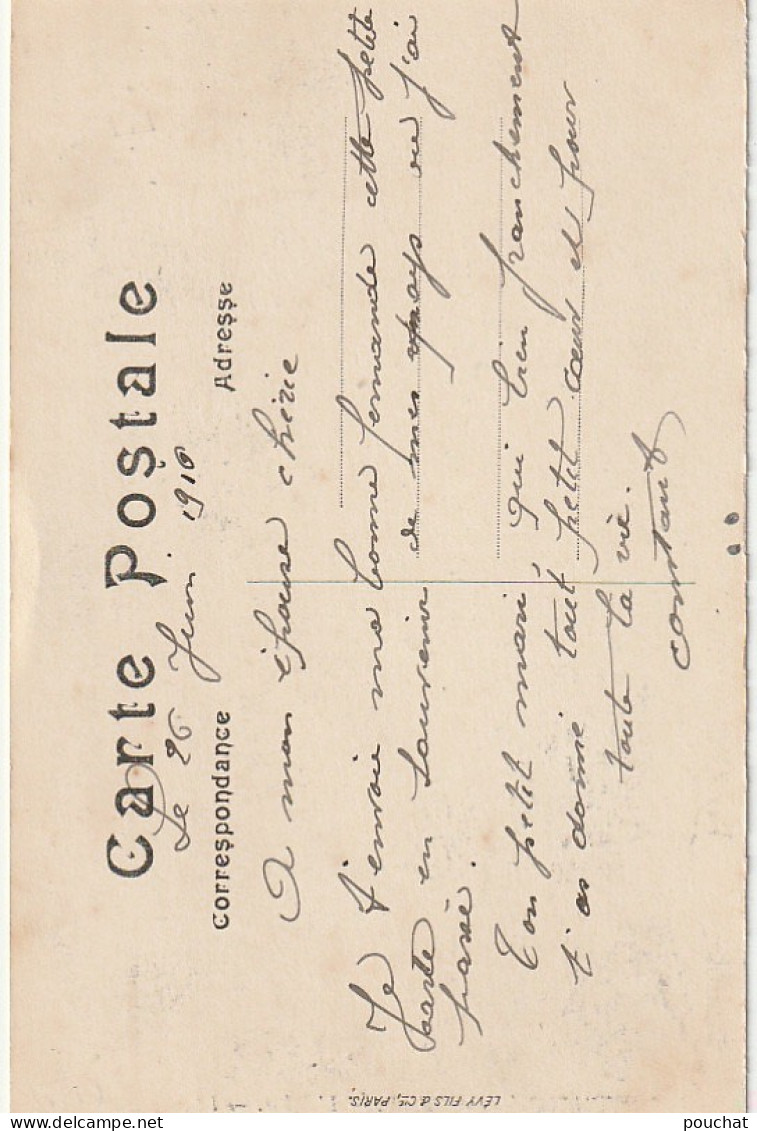 Carte Postale
Le 26 Juin 1910
Correspondance
Adresse
A mon épouse chérie
Je t'envoie ma bonne fernande cette petite
carte en souvenir de mes pays ou j'ai
passé.
Ton petit mari, qui bien franchement
t'as donné tout petit cœur et pour
toute la vie.
constant
LÉVY FILS & Cie, PARIS.
delcampe.net
pouchat